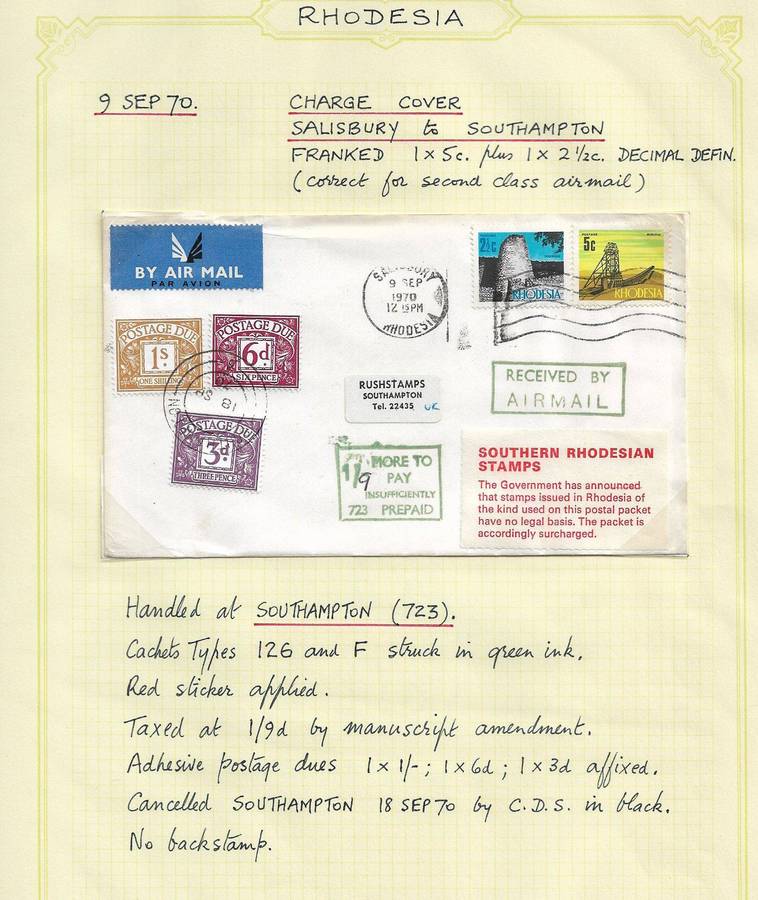 RHODESIA
9 SEP 70.
CHARGE COVER
SALISBURY to SOUTHAMPTON
FRANKED 1 x 5c. plus 1 x 2½c. DECIMAL DEFIN.
(correct for second class airmail)
BY AIR MAIL
PAR AVION
SALISBURY
9 SEP
1970
12 PM
RHODESIA
POSTAGE
2½c
RHODESIA
POSTAGE
5c
RHODESIA
POSTAGE DUE
1s.
ONE SHILLING
POSTAGE DUE
6d
SIXPENCE
18 SP
POSTAGE DUE
3d.
THREE PENCE
RUSHSTAMPS
SOUTHAMPTON
Tel. 22435 UK
RECEIVED BY
AIRMAIL
1/9 MORE TO
PAY
INSUFFICIENTLY
723 PREPAID
SOUTHERN RHODESIAN
STAMPS
The Government has announced
that stamps issued in Rhodesia of
the kind used on this postal packet
have no legal basis. The packet is
accordingly surcharged.
Handled at SOUTHAMPTON (723).
Cachets Types 126 and F struck in green ink.
Red sticker applied.
Taxed at 1/9d by manuscript amendment.
Adhesive postage dues 1 x 1/-; 1 x 6d; 1 x 3d affixed.
Cancelled SOUTHAMPTON 18 SEP 70 by C.D.S. in black.
No backstamp.